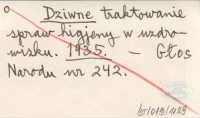 Dziwne traktowanie
spraw higjeny w uzdro-
wisku. 1935. – Głos
Narodu nr 242.